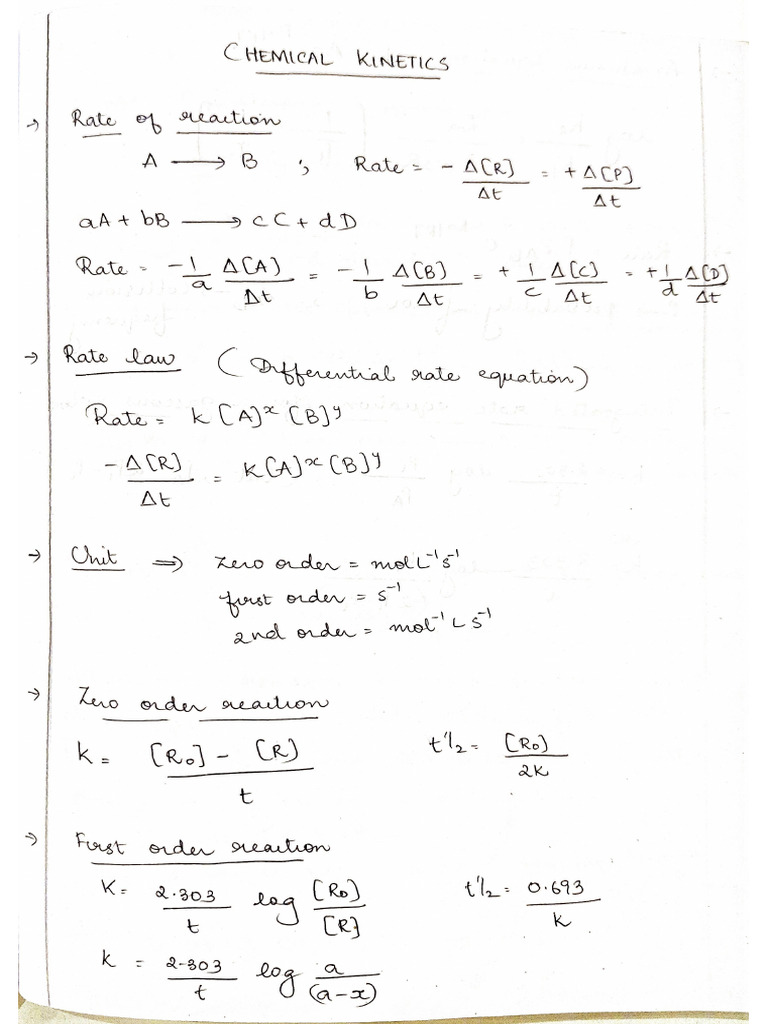 CHEMICAL KINETICS
→ Rate of reaction
A ⟶ B ; Rate = - Δ[R]/Δt = + Δ[P]/Δt
aA + bB ⟶ cC + dD
Rate = -1/a Δ[A]/Δt = -1/b Δ[B]/Δt = +1/c Δ[C]/Δt = +1/d Δ[D]/Δt
→ Rate law (Differential rate equation)
Rate = k [A]ˣ [B]ʸ
-Δ[R]/Δt = k[A]ˣ [B]ʸ
→ Unit ⇒ Zero order = mol L⁻¹ s⁻¹
first order = s⁻¹
2nd order = mol⁻¹ L s⁻¹
→ Zero order reaction
k = [R₀] - [R] / t t1/2 = [R₀]/2k
→ First order reaction
k = 2.303/t log [R₀]/[R] t1/2 = 0.693/k
k = 2.303/t log a/(a-x)